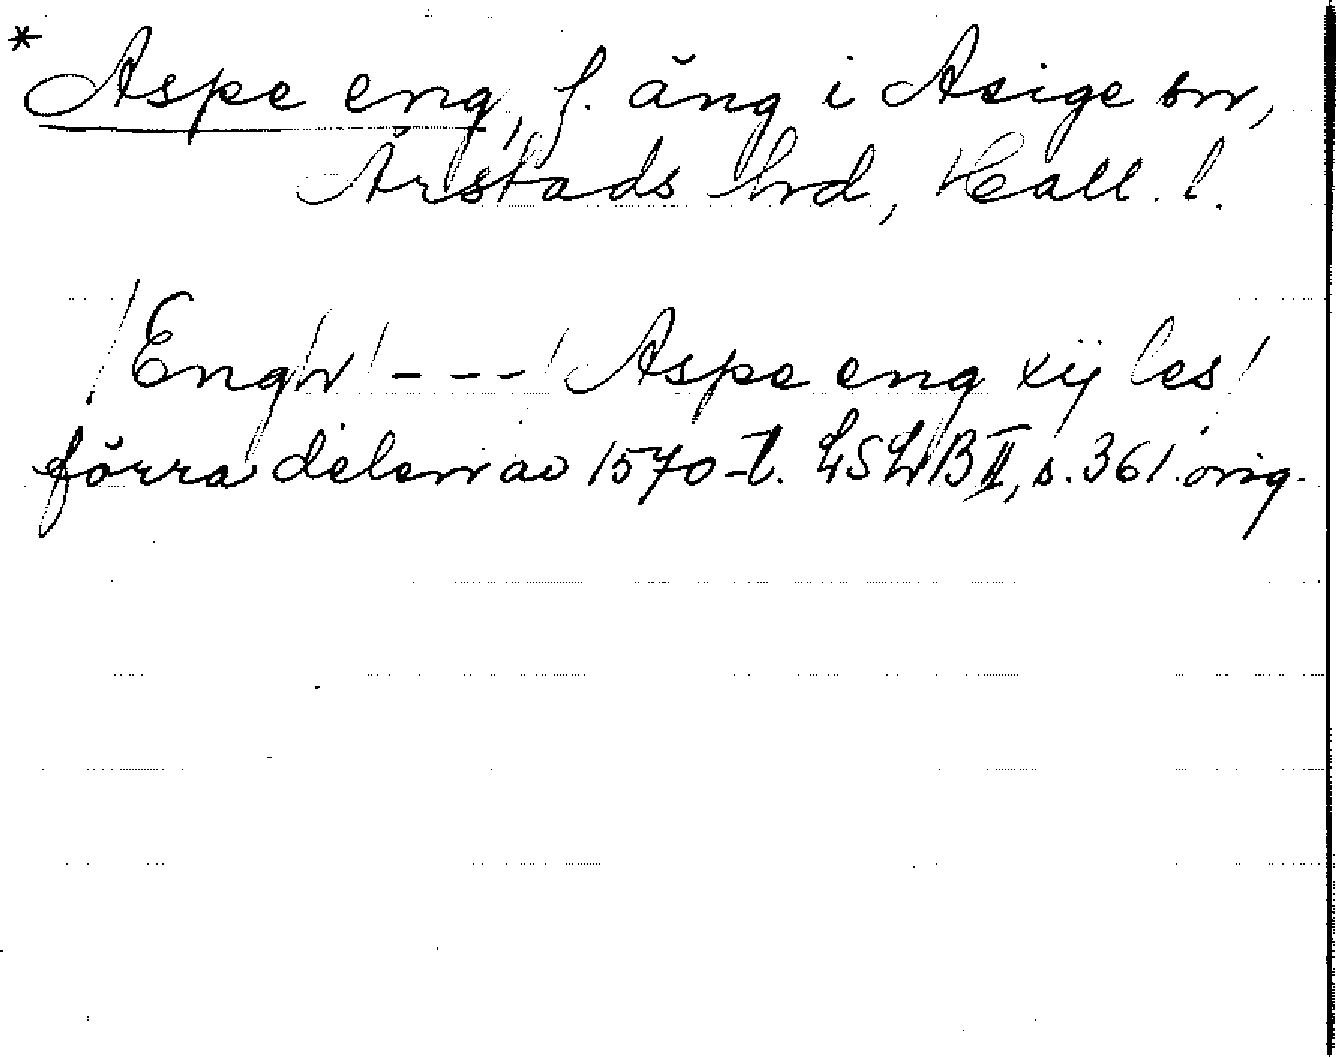 *Aspe eng, f. äng i Asige sn,
Årstads hrd, Hall. l.
/Engh/ - - - / Aspe eng xij les/
förra delen av 1570-t. LSHB II, s. 361. orig.